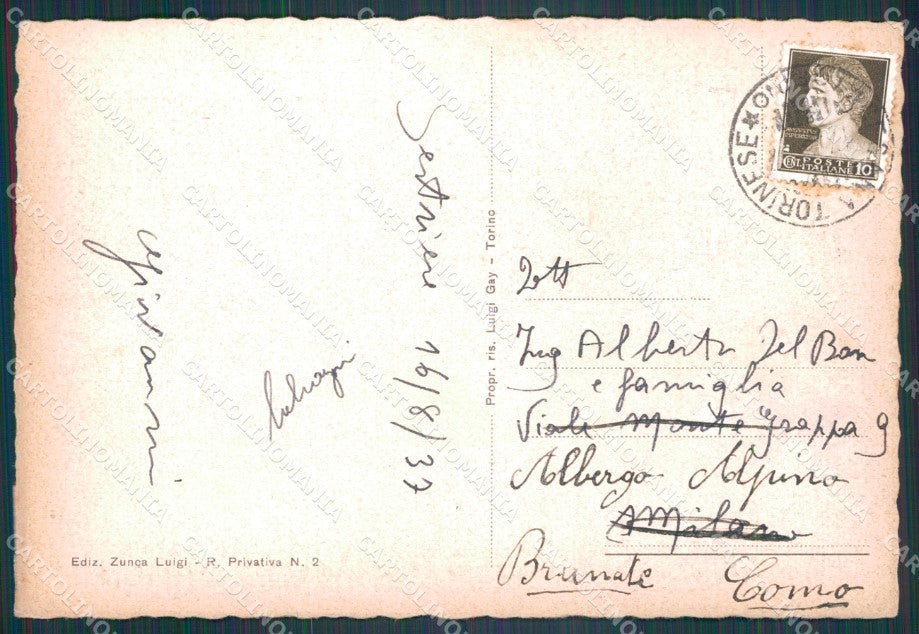 Sestriere 16/8/37
Giovanni
Ediz. Zunca Luigi - R. Privativa N. 2
Propr. ris. Luigi Gay - Torino
AUGUSTO
IMPERATORE
CENT. POSTE ITALIANE 10
TORINESE
Dott
Ing Alberto Del Bon
e famiglia
Viale Monte Grappa 9
Albergo Alpino
Milano
Brunate Como
CARTOLINOMANIA